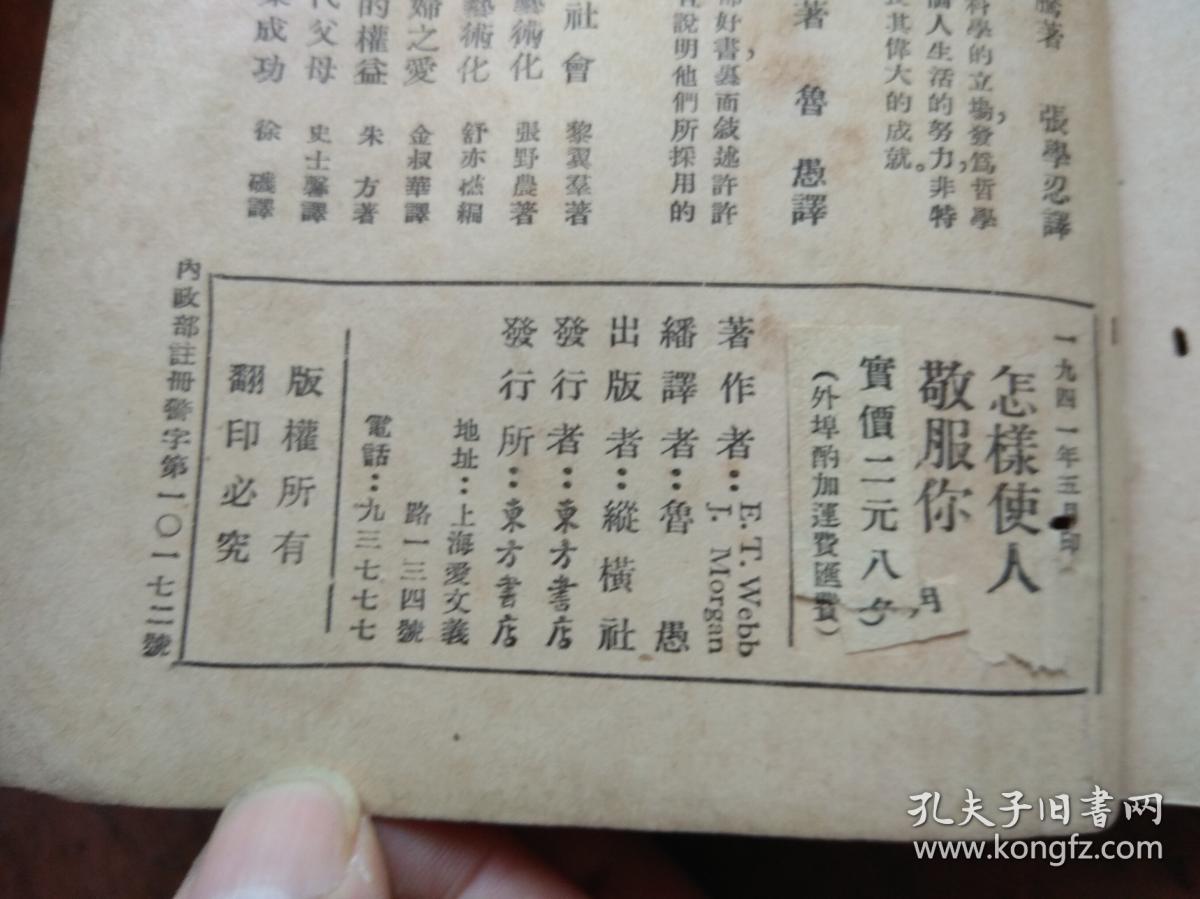 張學忍譯
科學的立場，發爲哲學
個人生活的努力，非特
其偉大的成就。
著 魯愚譯
部好書裏面敍述許許
說明他們所採用的
社會 黎翼羣著
藝術化 張野農著
藝術化 舒亦樵編
婦之愛 金叔華譯
的權益 朱方著
代父母 史士馨譯
成功 徐磯譯
一九四一年三月印
怎樣使人
敬服你
月
實價二元八角
（外埠酌加運費匯費）
著作者：E. T. Webb
J. Morgan
繙譯者：魯愚
出版者：縱橫社
發行者：東方書店
發行所：東方書店
地址：上海愛文義
路一三四號
電話：九三七七七
版權所有
翻印必究
內政部註冊警字第一〇一七二號
孔夫子旧书网
www.kongfz.com